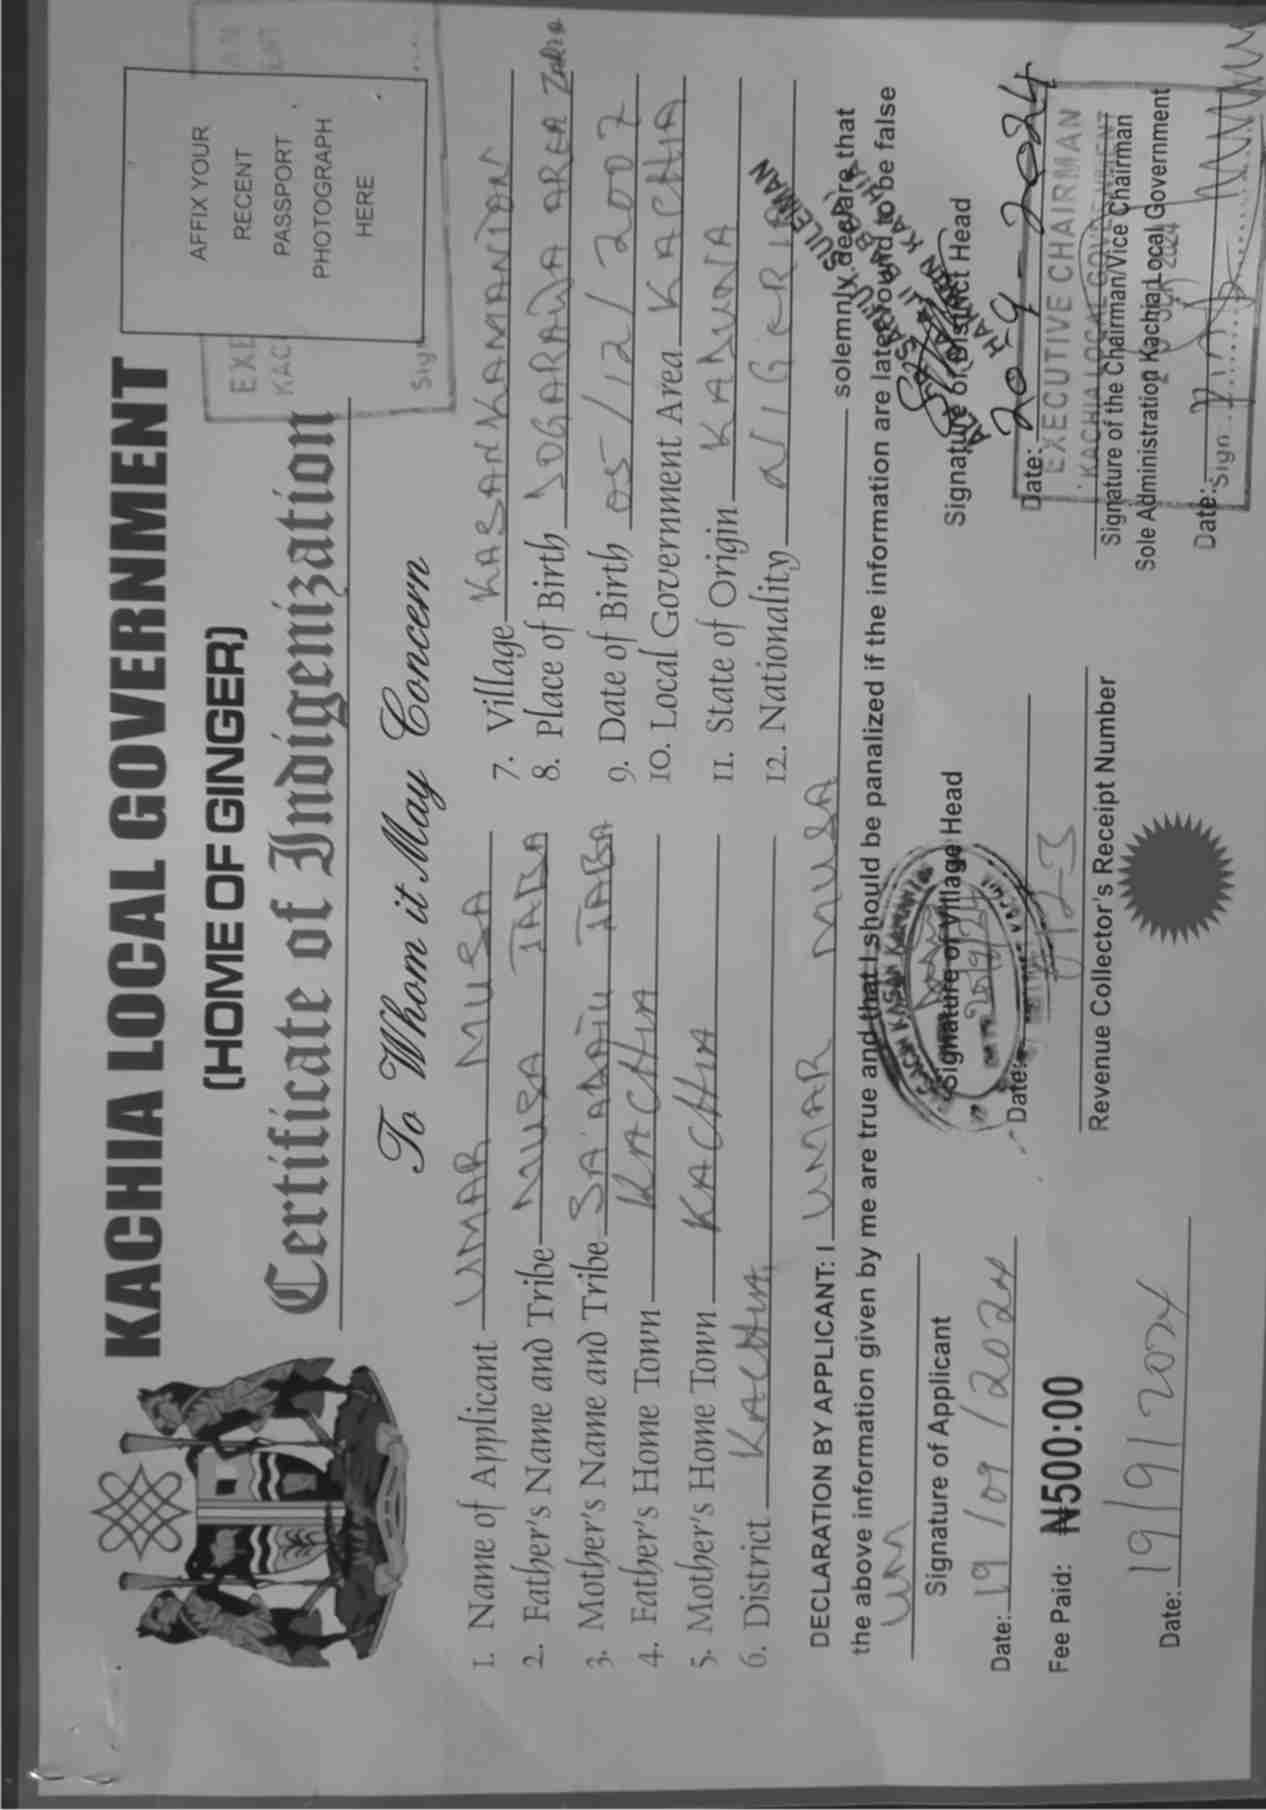 KACHIA LOCAL GOVERNMENT
(HOME OF GINGER)
Certificate of Indigenization
AFFIX YOUR
RECENT
PASSPORT
PHOTOGRAPH
HERE
To Whom it May Concern
1. Name of Applicant UMAR MUSA
2. Father's Name and Tribe MUSA JABA
3. Mother's Name and Tribe SA'ADATU JABA
4. Father's Home Town KACHIA
5. Mother's Home Town KACHIA
6. District KACHIA
7. Village KASANKAMANTAN
8. Place of Birth JOGARAWA AREA Zaria
9. Date of Birth 05/12/2007
10. Local Government Area KACHIA
11. State of Origin KADUNA
12. Nationality NIGERIA
DECLARATION BY APPLICANT: I UMAR MUSA solemnly declare that
the above information given by me are true and that I should be panalized if the information are later found to be false
Um
Signature of Applicant
Date: 19/09/2024
Fee Paid: ₦500:00
Date: 19/9/2024
Signature of Village Head
20/9/24
Date:
Revenue Collector's Receipt Number
Signature of District Head
SULEIMAN
Date: 20-9-2024
EXECUTIVE CHAIRMAN
KACHIA LOCAL GOVERNMENT
Signature of the Chairman/Vice Chairman
Sole Administration Kachia Local Government
Date:
Sign